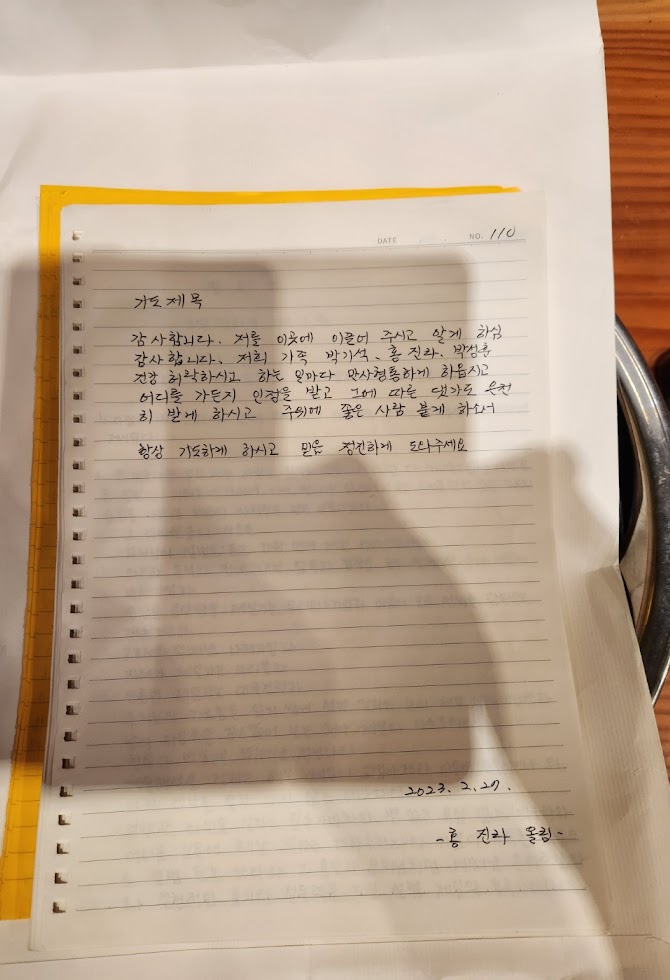 DATE
NO. 110
기도 제목
감사합니다. 저를 이곳에 이끌어 주시고 알게 하심
감사합니다. 저희 가족 박기석. 홍진라. 박성훈
건강 허락하시고 하는 일마다 만사형통하게 하옵시고
어디를 가든지 인정을 받고 그에 따른 댓가도 온전
히 받게 하시고 주위에 좋은 사람 붙게 하소서
항상 기도하게 하시고 믿음 정진하게 도와주세요
2023. 2. 27.
-홍 진라 올림-